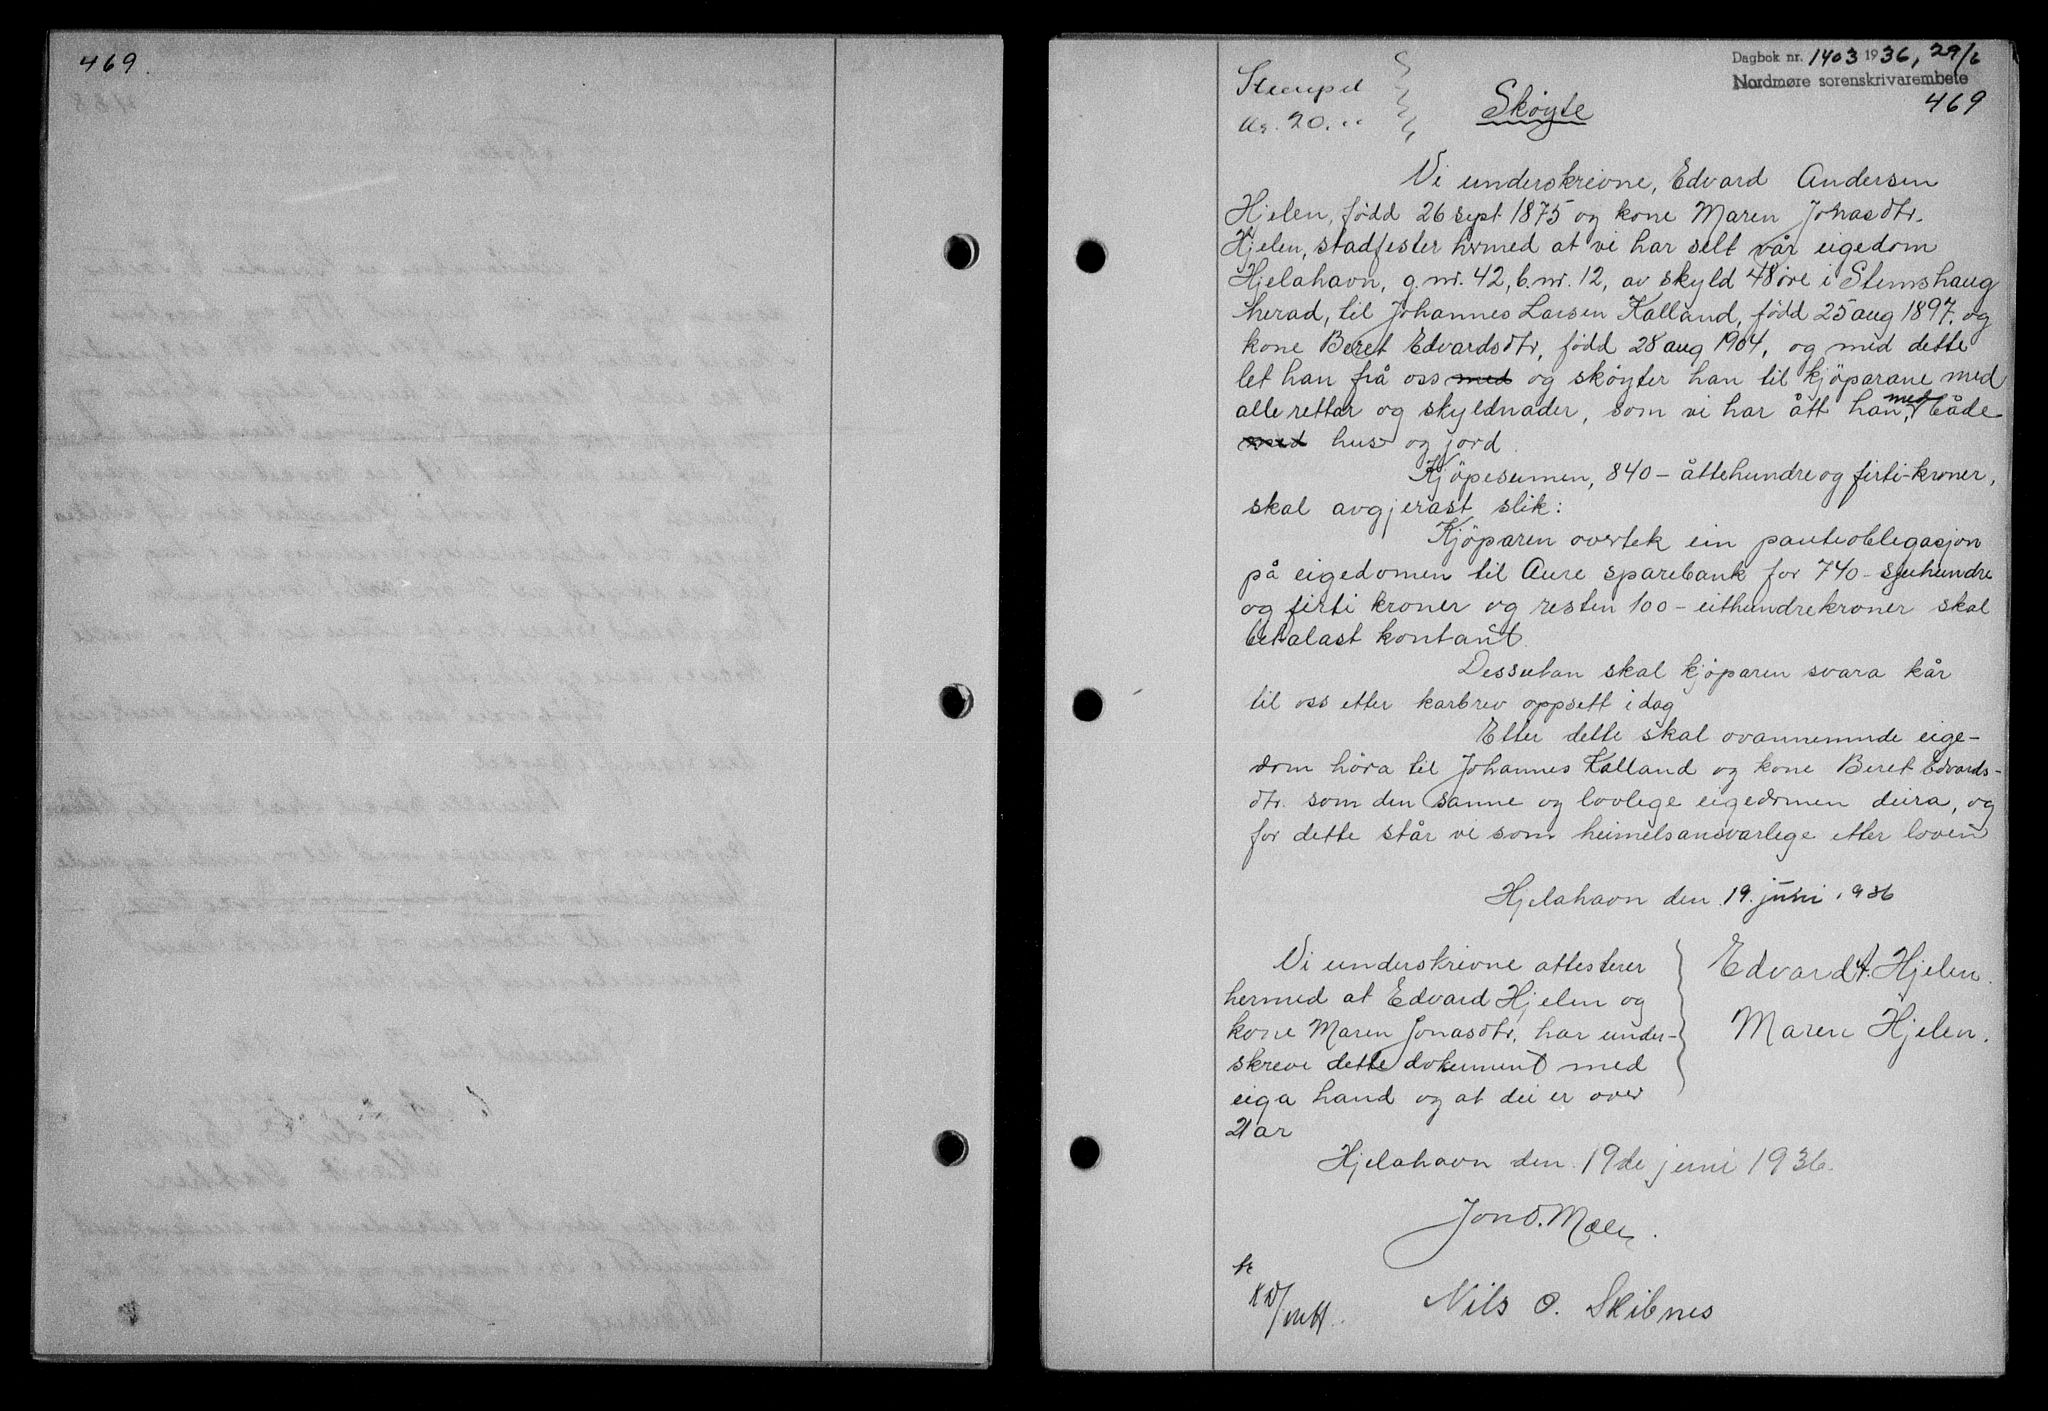 469.
Dagbok nr. 1403 1936, 29/6
Nordmøre sorenskrivarembete
469
Stempel
Kr. 20.
Skøyte
Vi underskrevne, Edvard Andersen
Hjelen, född 26 sept 1875 og kone Maren Jonasdtr.
Hjelen, stadfester hermed at vi har selt vår eigedom
Hjelahavn, g.nr. 42, b.nr. 12, av skyld 48 öre i Stemshaug
herad, til Johannes Larsen Kalland, född 25 aug 1897, og
kone Beret Edvardsdtr, född 28 aug 1904, og med dette
let han frå oss med og skøyter han til kjöparane med
alle rettar og skyldnader, som vi har ått han, med både
med hus og jord.
Kjöpesumen, 840 – åttehundre og firti-kroner,
skal avgjerast slik:
Kjöparen overtek ein panteobligasjon
på eigedomen til Aure sparebank for 740 – sjuhundre
og firti kroner og resten 100 – eithundrekroner skal
betalast kontant.
Dessutan skal kjöparen svara kår
til oss etter karbrev oppsett i dag
Etter dette skal ovannemnde eige-
dom höra til Johannes Kalland og kone Beret Edvards-
dtr. som den sanne og lovlege eigedomen deira, og
for dette står vi som heimelsansvarlege etter loven
Hjelahavn den 19. juni 1936
Vi underskrevne attesterer
hermed at Edvard Hjelen og
kone Maren Jonasdtr, har under-
skreve dette dokument med
eiga hand og at dei er over
21 ar
Edvard A. Hjelen.
Maren Hjelen.
Hjelahavn den 19de juni 1936.
Jon O. Mæle.
Nils O. Skibnes